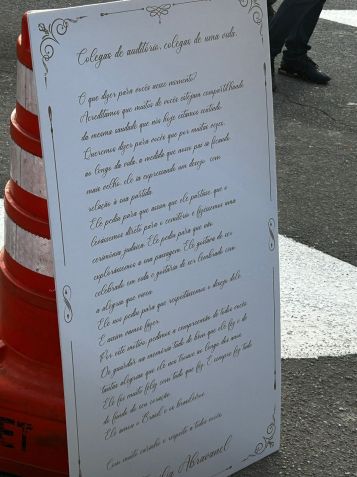 Colegas de auditório, colegas de uma vida.
O que dizer para vocês nesse momento?
Acreditamos que muitos de vocês estejam compartilhando
da mesma saudade que nós hoje estamos sentindo.
Queremos dizer para vocês que por muitas vezes,
ao longo da vida, a medida que nosso pai ia ficando
mais velho, ele ia expressando um desejo com
relação à sua partida.
Ele pedia para que assim que ele partisse, que o
levássemos direto para o cemitério e fizéssemos uma
cerimônia judaica. Ele pedia para que não
explorássemos a sua passagem. Ele gostava de ser
celebrado em vida e gostaria de ser lembrado com
a alegria que viveu.
Ele nos pediu para que respeitássemos o desejo dele.
E assim vamos fazer.
Por este motivo, pedimos a compreensão de todos vocês
De guardar na memória tudo de bom que ele fez e de
tantas alegrias que ele nos trouxe ao longo dos anos.
Ele foi muito feliz com tudo que fez. E sempre fez tudo
do fundo do seu coração.
Ele amou o Brasil e os brasileiros.
Com muito carinho e respeito a todos vocês
Abravanel
ET